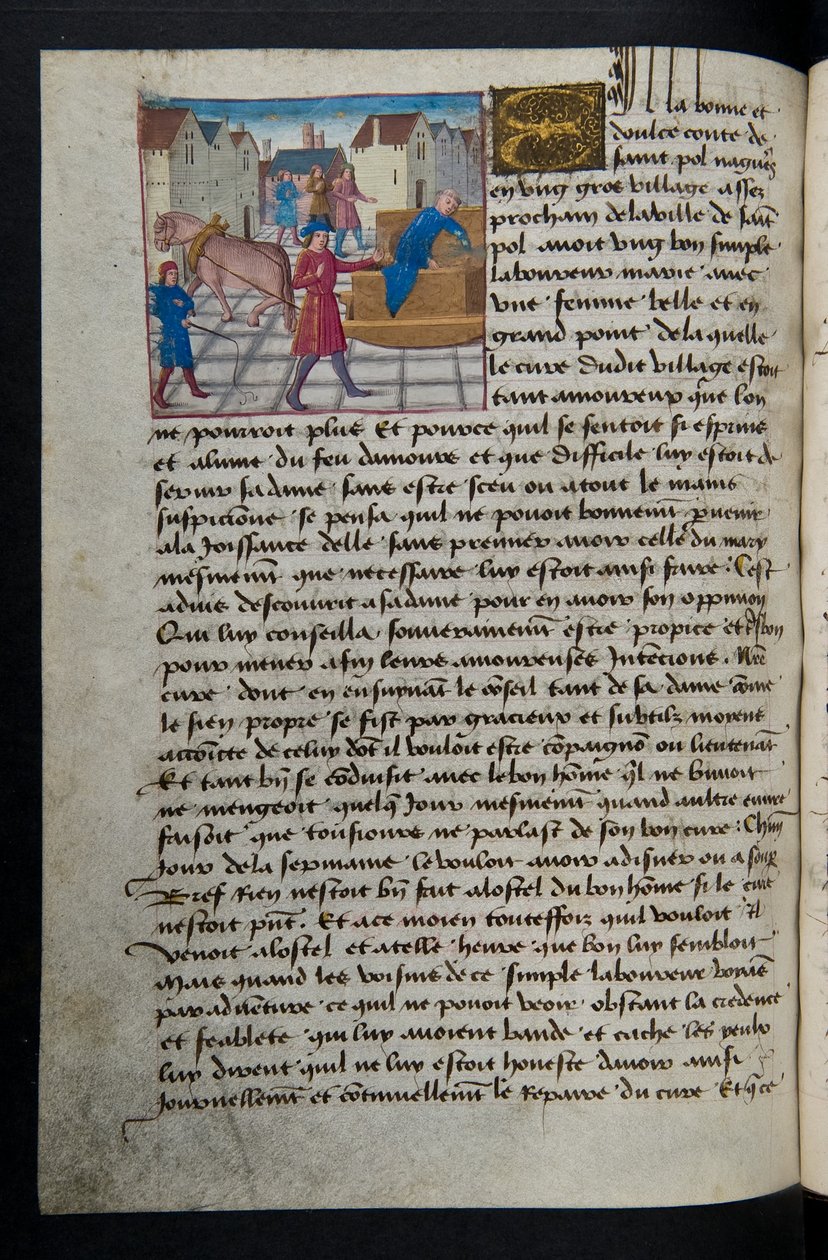 En la bonne et
doulce conte de
saint pol nagueres
en vng gros village assez
prochain de la ville de saīt
pol auoit vng bon simple
laboureur marie auec
vne femme belle et en
grand point de la quelle
le cure dudit village estoit
tant amoureux que lon
ne pourroit plus Et pource quil se sentoit si esprins
et alume du feu damours et que difficile luy estoit de
seruir sa dame sans estre sceu ou atout le mains
suspicione se pensa quil ne pouoit bonnemēt puenir
ala Joissance delle sans premier auoir celle du mary
mesmemēt que necessaire luy estoit ainsi faire : Cest
aduis descouurit a sa dame pour en auoir son oppinion
Qui luy conseilla souuerainemēt estre propice et bon
pour mener a fin leurs amoureuses Intencions . Nr̄e
cure dont en ensuyuāt le cōseil tant de sa dame cōme
le sien propre se fist par gracieux et subtilz moyens
accōicte de celuy dōt il vouloit estre cōpaignō ou lieutenāt
Et tant bn̄ se cōduisit auec le bon hōme ql̄ ne buuoit
ne mengeoit quelq̄ Jour mesmemēt quand aultre euure
faisoit que tousiours ne parlast de son bon cure : Chūn
Jour de la sepmaine le vouloit auoir a disner ou a soup
Bref Rien nestoit bn̄ fait alostel du bon hōme si le cure
nestoit pn̄t . Et a ce moien touteffoiz quil vouloit Il
venoit alostel et a telle heure que bon luy sembloit
Mais quand les voisins de ce simple laboureur voyās
par aduēture ce quil ne pouoit veoir obstant la credence
et feablete qui luy auoient bande et cache les yeulx
luy dirent quil ne luy estoit honeste dauoir ainsi
Journellemēt et cōtinuellemēt le Repaire du cure Et q̄ ce